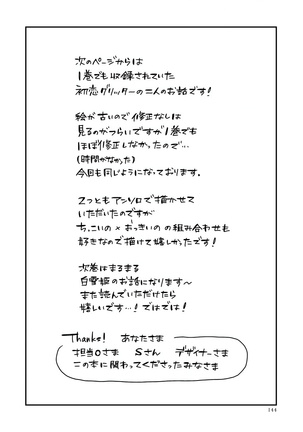 次のページからは
1巻でも収録されていた
初恋グリッターの二人のお話です!
絵が古いので修正なしは
見るのがつらいですが1巻でも
ほぼ修正しなかったので…
(時間がなかった)
今回も同じようになっております。
2つともアンソロで描かせて
いただいたのですが
ちっこいの×おっきいの の組み合わせも
好きなので描けて嬉しかったです!
次巻はまるまる
白雪姫のお話になります～
また読んでいただけたら
嬉しいです…!ではでは!
Thanks! あなたさま
担当Oさま Sさん デザイナーさま
この本に関わってくださったみなさま
144